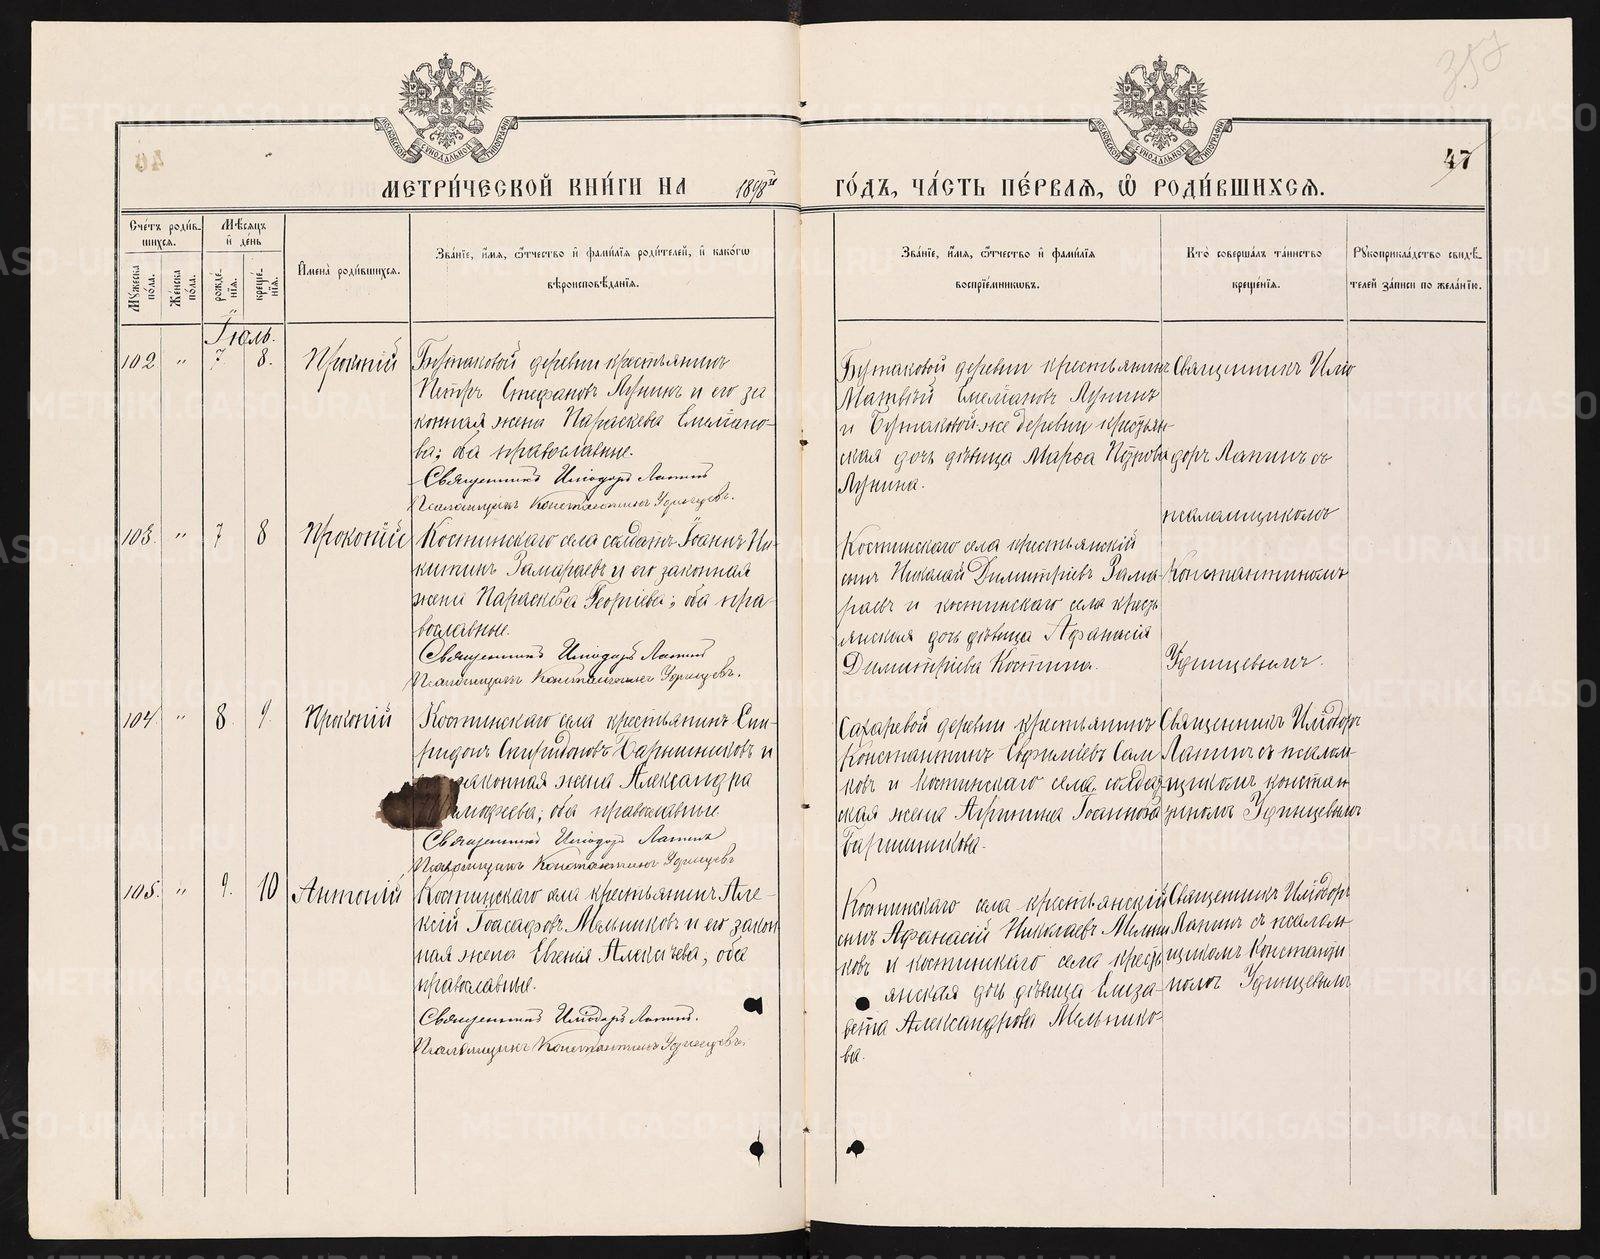 357
47
МЕТРИ́ЧЕСКОЙ КНИ́ГИ НА 1898й ГО́ДЪ, ЧА́СТЬ ПЕ́РВАЯ, Ѽ РОДИ́ВШИХСЯ.
Сче́тъ роди́в-
шихся.
Мѣ́сяцъ
и҆ де́нь
Мꙋжеска по́ла.
Же́нска по́ла.
рожде́-
нїя.
креще́-
нїя.
И҆мена̀ роди́вшихся.
Зва́нїе, и҆́мя, ѻ҆́тчество и҆ фами́лїя роди́телей, и҆ како́гѡ
вѣроисповѣ́данїя.
Зва́нїе, и҆́мя, ѻ҆́тчество и҆ фами́лїя
воспрїе́мникѡвъ.
Кто̀ соверша́лъ та́инство
креще́нїя.
Рꙋкоприкла́дство свидѣ́-
телей за́писи по жела́нїю.
Іюль.
102 " 7. 8. Прокопій
Бутаковой деревни крестьянинъ
Петръ Стефановъ Лунинъ и его за
конная жена Параскева Емелiано-
ва; оба православные.
Священникъ Иліодоръ Лапинъ
Псаломщикъ Константинъ Удинцевъ.
Бутаковой деревни крестьянинъ
Матвѣй Емеліановъ Лунинъ
и Бутаковой-же деревни крестьян-
ская дочь дѣвица Марѳа Петрова
Лунина.
Священникъ Иліо
доръ Лапинъ съ
псаломщикомъ
Константиномъ
Удинцевымъ.
103. " 7 8 Прокопій
Костинскаго села солдатъ Іоаннъ Ни-
китинъ Замараевъ и его законная
жена Параскева Георгіева; оба пра
вославные.
Священникъ Иліодоръ Лапинъ
Псаломщикъ Константинъ Удинцевъ.
Костинскаго села крестьянскій
сынъ Николай Димитріевъ Зама
раевъ и костинскаго села кресть
янская дочь дѣвица Афанасія
Димитріева Костина.
104. " 8. 9. Прокопій
Костинскаго села крестьянинъ Спи-
ридонъ Спиридоновъ Барышниковъ и
законная жена Александра
оба православные
Священникъ Иліодоръ Лапинъ
Псаломщикъ Константинъ Удинцевъ
Сахаревой деревни крестьянинъ
Константинъ Евфиміевъ Сал
ковъ и Костинскаго села солдат
ская жена Агрипина Іоаннова
Барышникова.
Священникъ Иліодоръ
Лапинъ съ псалом
щикомъ Констан
тиномъ Удинцевымъ
105. " 9. 10 Антоній
Костинскаго села крестьянинъ Але-
ксій Іоасафовъ Мельниковъ и его закон
ная жена Евгенія Алексіева, оба
православные.
Священникъ Иліодоръ Лапинъ.
Псаломщикъ Константинъ Удинцевъ.
Костинскаго села крестьянскій
сынъ Афанасій Николаевъ Мельни
ковъ и костинскаго села кресть
янская дочь дѣвица Елиза-
вета Александрова Мельнико-
ва.
Священникъ Иліодоръ
Лапинъ съ псалом
щикомъ Константи
номъ Удинцевымъ
METRIKI.GASO-URAL.RU